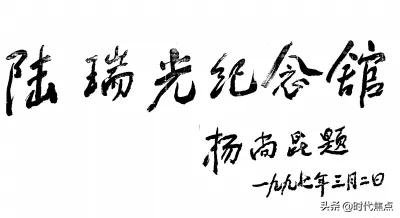 陆瑞光纪念馆
杨尚昆题
一九九七年三月二日
头条 @时代焦点